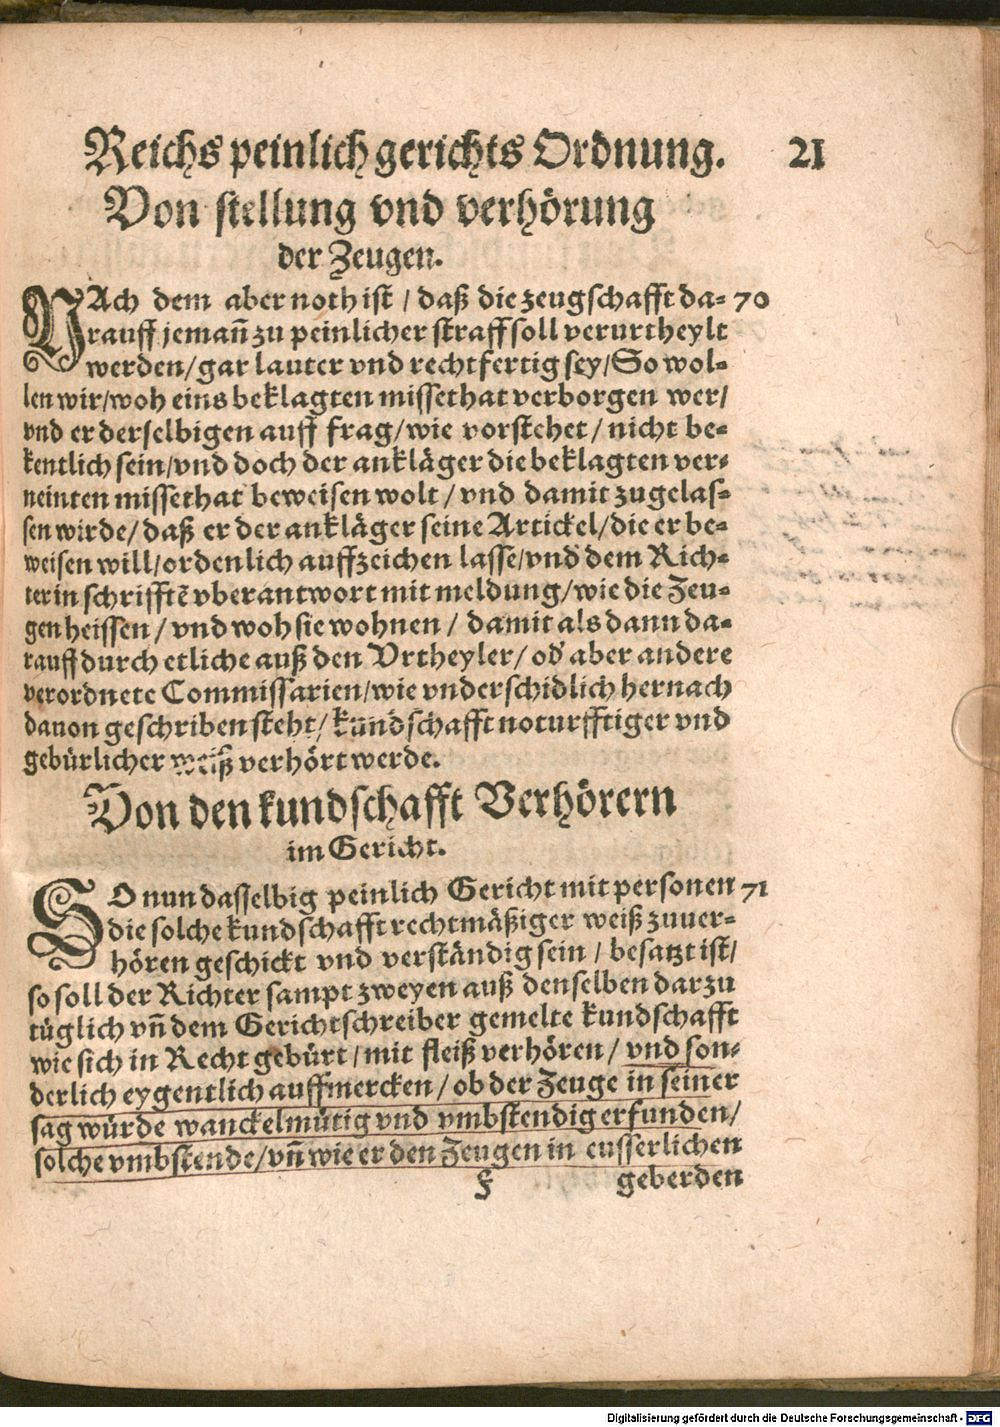 Reichs peinlich gerichts Ordnung. 21
Von stellung vnd verhörung
der Zeugen.
NAch dem aber noth ist / daß die zeugschafft da= 70
rauff jemañ zu peinlicher straff soll verurtheylt
werden / gar lauter vnd rechtfertig sey / So wol=
len wir / woh eins beklagten missethat verborgen wer /
vnd er derselbigen auff frag / wie vorstehet / nicht be=
kentlich sein / vnd doch der ankläger die beklagten ver=
neinten missethat beweisen wolt / vnd damit zugelas=
sen wirde / daß er der ankläger seine Artickel / die er be=
weisen will / ordenlich auffzeichen lasse / vnd dem Rich=
ter in schrifftẽ vberantwort mit meldung / wie die Zeu=
gen heissen / vnd woh sie wohnen / damit als dann da=
rauff durch etliche auß den Vrtheyler / od' aber andere
verordnete Commissarien / wie vnderschidlich hernach
dauon geschriben steht / kundschafft noturfftiger vnd
gebürlicher weiß verhört werde.
Von den kundschafft Verhörern
im Gericht.
SO nun dasselbig peinlich Gericht mit personen 71
die solche kundschafft rechtmäßiger weiß zuuer=
hören geschickt vnd verständig sein / besatzt ist /
so soll der Richter sampt zweyen auß denselben darzu
tüglich vñ dem Gerichtschreiber gemelte kundschafft
wie sich in Recht gebürt / mit fleiß verhören / vnd son=
derlich eygentlich auffmercken / ob der Zeuge in seiner
sag würde wanckelmütig vnd vmbstendig erfunden /
solche vmbstende / vñ wie er den Zeugen in eusserlichen
F geberden
Digitalisierung gefördert durch die Deutsche Forschungsgemeinschaft - DFG